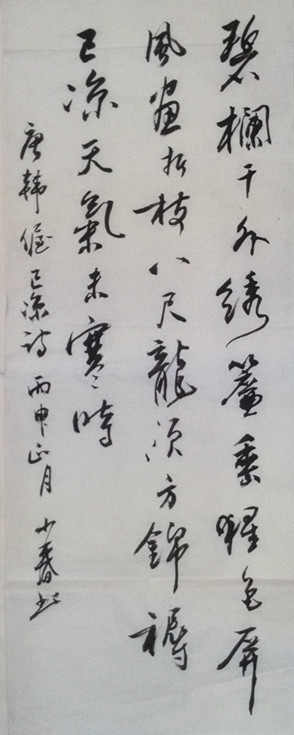 碧欄干外綉簾垂猩色屏
風畫折枝八尺龍須方錦褥
已涼天氣未寒時
唐韓偓已涼詩 丙申正月 小春书